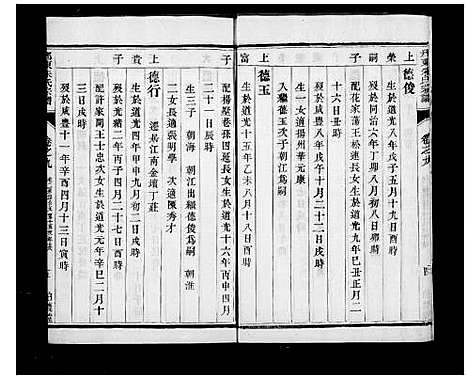 上 德俊
榮
歿於同治六年丁卯八月初八日卯時
嗣
配花家蕩王松連長女生於道光九年己丑正月二
子
十六日丑時
歿於咸豐八年戊午八月二十二日戌時
一女生 適揚州華元康
入繼德玉次子朝江爲嗣
上 德玉
富
生於道光十八年戊戌八月十八日酉時
子
配楊墅巷孫四延長女生於道光十六年丙申四月
二十一日辰時
生三子 朝海 朝江出繼德俊爲嗣 朝淮
二女長適張明學 次適陳秀才
上 德行
遷居江南金壇丁莊
貴
生於道光十四年甲午九月初二日戌時
子
歿於光緒二年丙子四月二十七日酉時
配許家開王士忠次女生於道光元年辛巳二月十
三日戌時
歿於咸豐十一年辛酉四月十三日寅時
卷之九